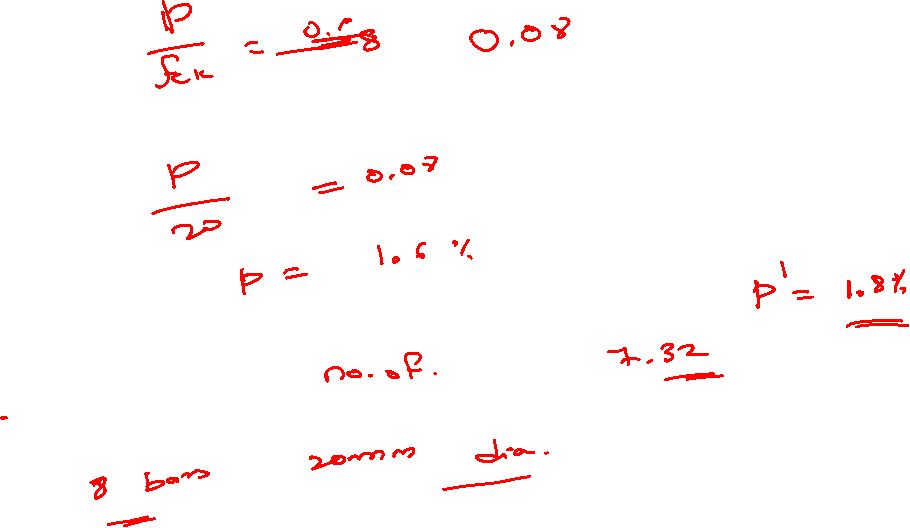 p/fck = 0.08
p/20 = 0.08
p = 1.6 %
p' = 1.8%
no. of. 7.32
8 bars 20mm dia.